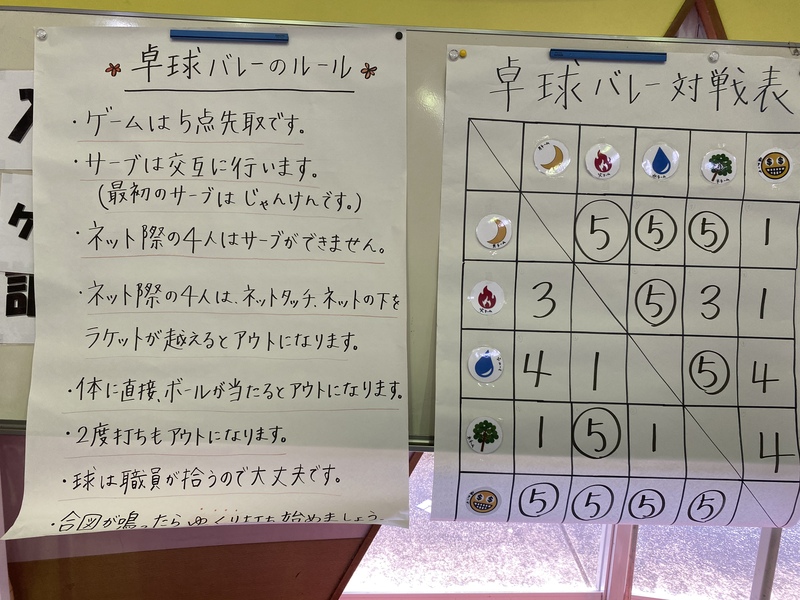 卓球バレーのルール
・ゲームは5点先取です。
・サーブは交互に行います。
(最初のサーブはじゃんけんです。)
・ネット際の4人はサーブができません。
・ネット際の4人は、ネットタッチ、ネットの下を
ラケットが越えるとアウトになります。
・体に直接、ボールが当たるとアウトになります。
・2度打ちもアウトになります。
・球は職員が拾うので大丈夫です。
・合図が鳴ったらゆっくり打ち始めましょう。
卓球バレー対戦表
⑤ ⑤ ⑤ 1
3 ⑤ 3 1
4 1 ⑤ 4
1 ⑤ 1 4
⑤ ⑤ ⑤ ⑤